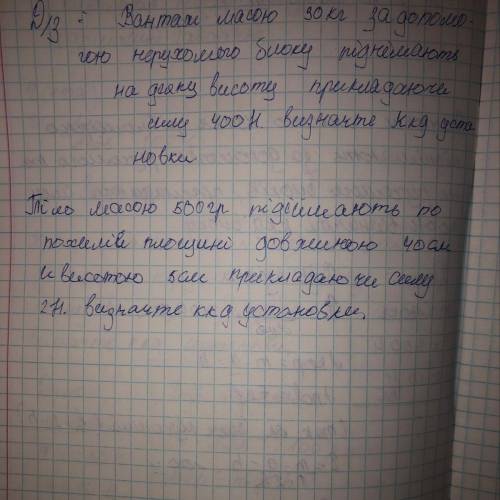 Д/З : Вантаж масою 30кг за допомо-
гою нерухомого блоку піднімають
на деяку висоту прикладаючи
силу 400Н визначте Ккд уста
новки
Тіло масою 500гр підіймають по
похилій площині довжиною 40см
и висотою 5см прикладаючи силу
2Н. визначте ккд установки.